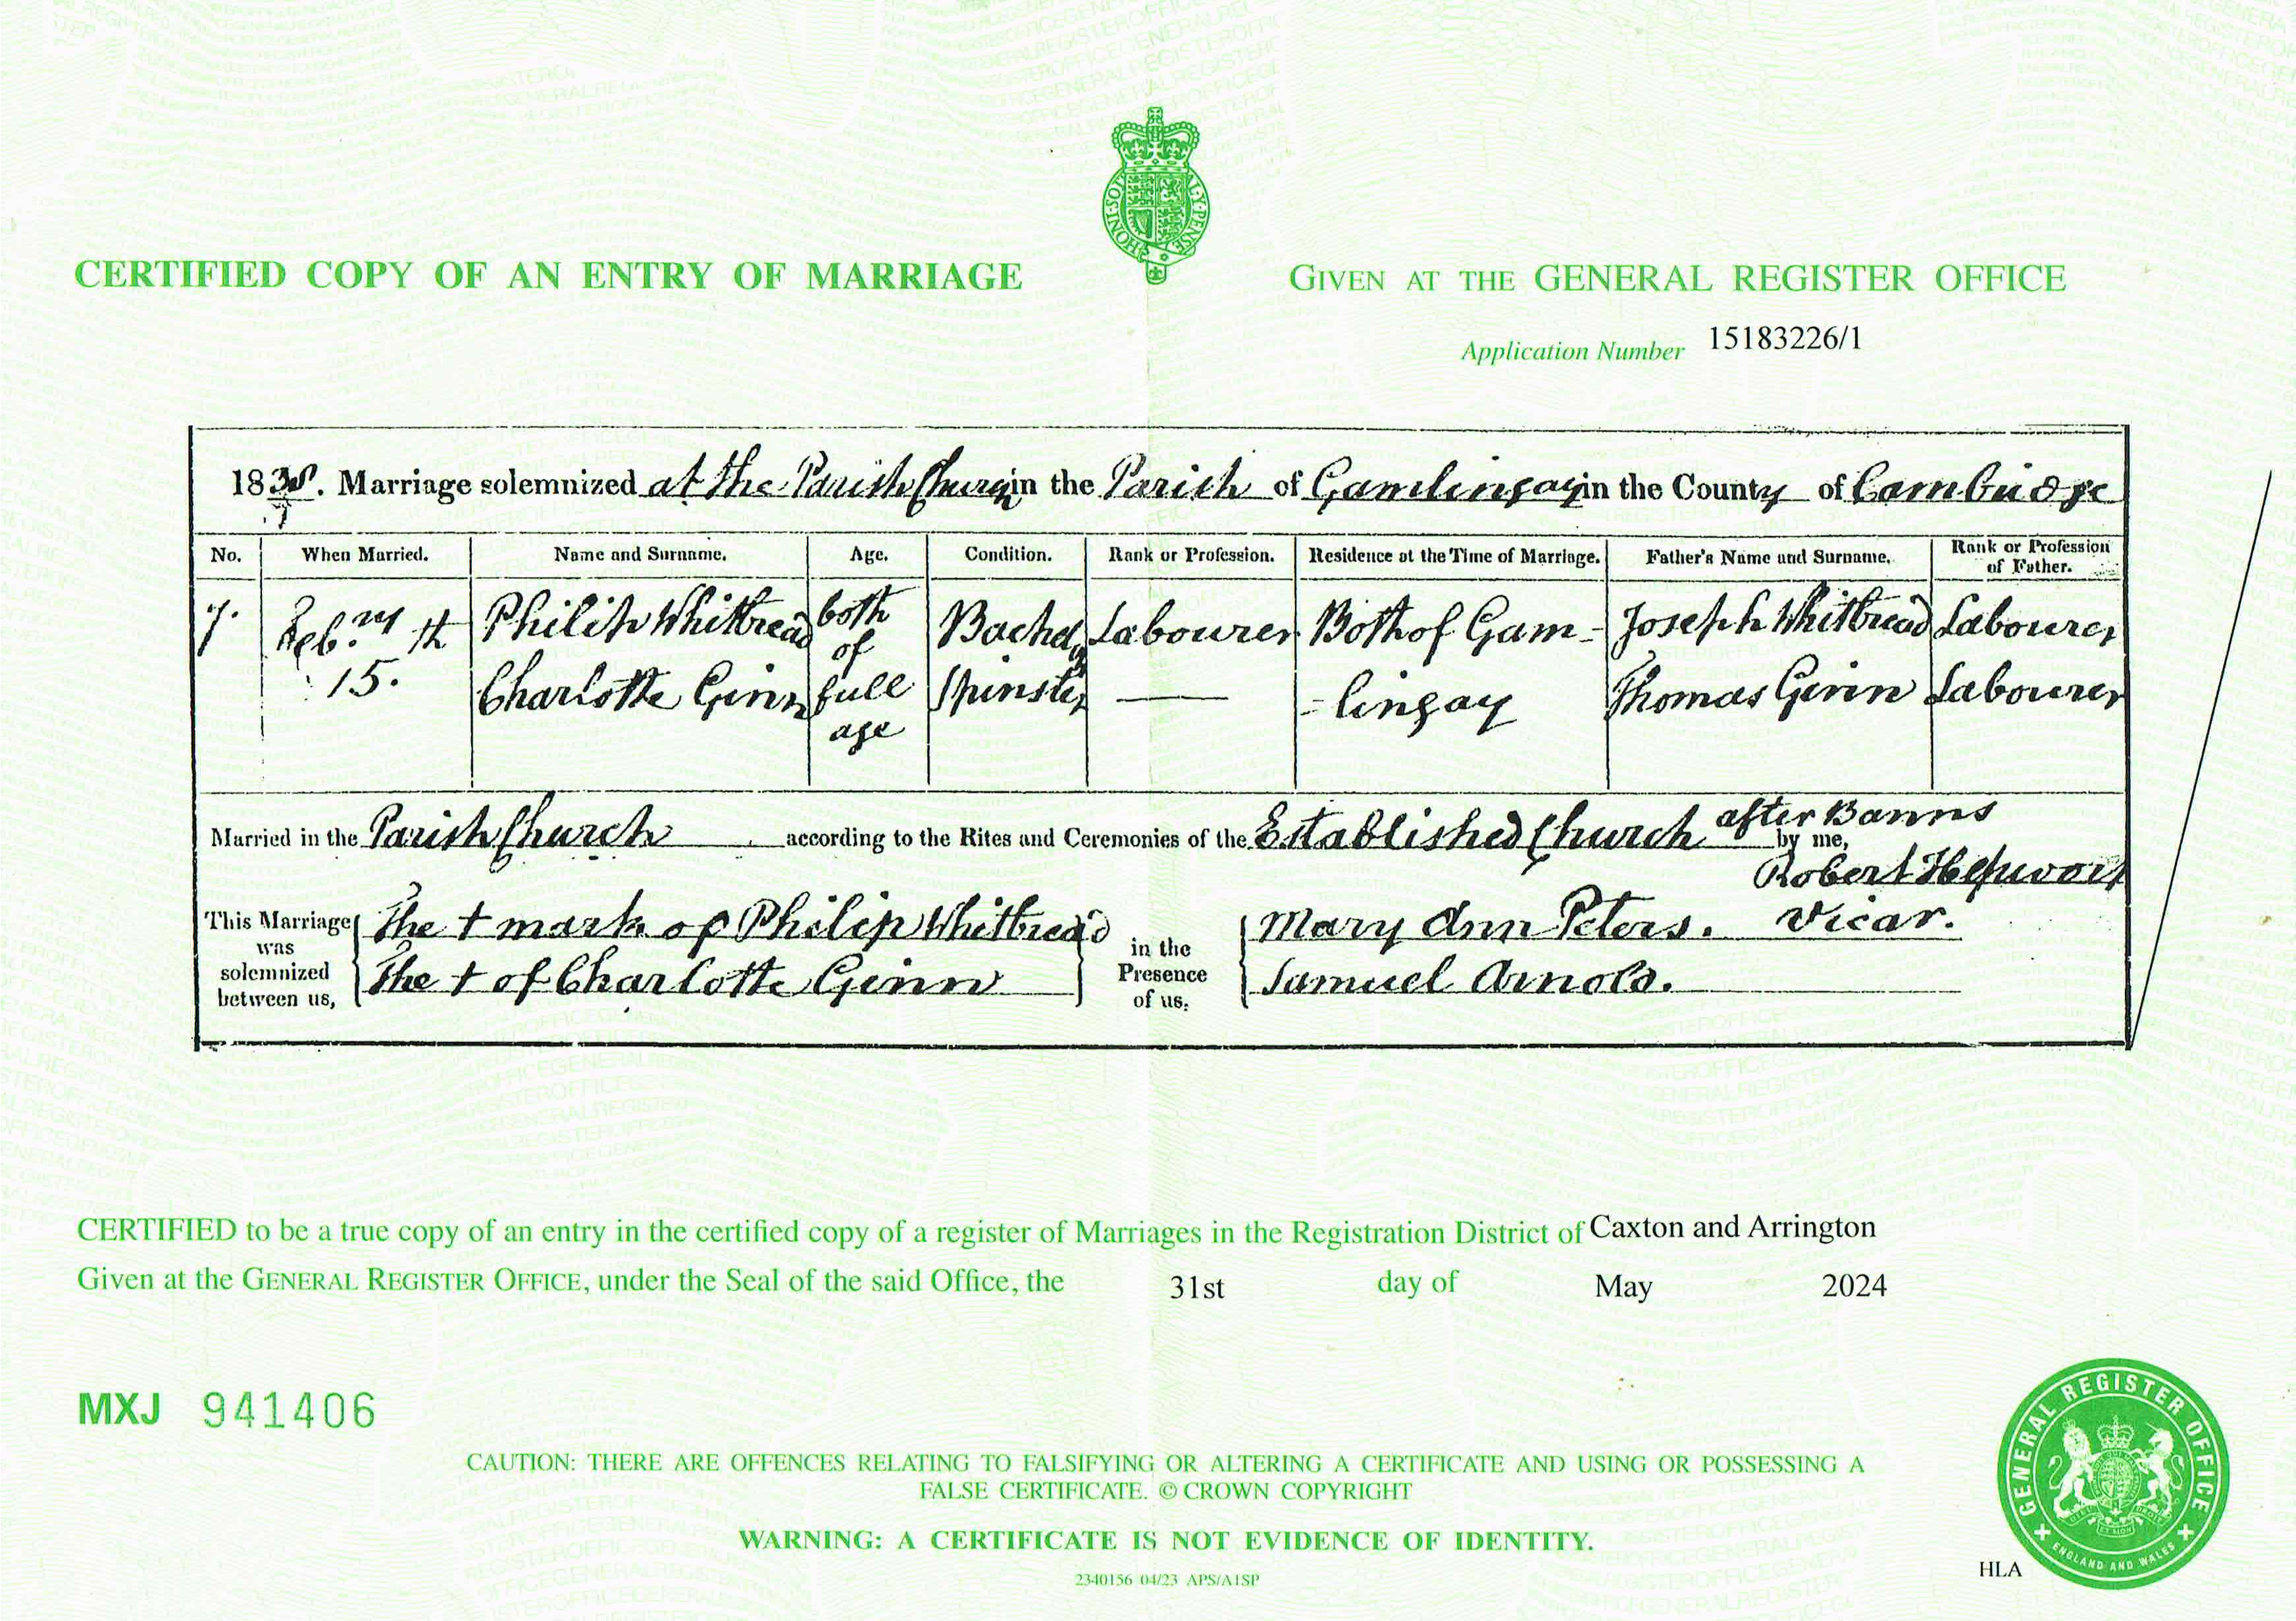 HONI·SOIT
AL·Y·PENSE
CERTIFIED COPY OF AN ENTRY OF MARRIAGE
GIVEN AT THE GENERAL REGISTER OFFICE
Application Number 15183226/1
1838. Marriage solemnized at the Parish Church in the Parish of Gamlingay in the County of Cambridge
No. When Married. Name and Surname. Age. Condition. Rank or Profession. Residence at the Time of Marriage. Father's Name and Surname. Rank or Profession of Father.
7. Feb.ry th Philip Whitbread both of Bachel.r Labourer Both of Gam- Joseph Whitbread Labourer
15. Charlotte Ginn full age Spinster — = lingay Thomas Ginn Labourer
Married in the Parish Church according to the Rites and Ceremonies of the Established Church after Banns by me,
Robert Hepworth
Vicar.
This Marriage was solemnized between us,
The + mark of Philip Whitbread
The + of Charlotte Ginn
in the Presence of us,
Mary Ann Peters.
Samuel Arnold.
CERTIFIED to be a true copy of an entry in the certified copy of a register of Marriages in the Registration District of Caxton and Arrington
Given at the GENERAL REGISTER OFFICE, under the Seal of the said Office, the 31st day of May 2024
MXJ 941406
CAUTION: THERE ARE OFFENCES RELATING TO FALSIFYING OR ALTERING A CERTIFICATE AND USING OR POSSESSING A
FALSE CERTIFICATE. © CROWN COPYRIGHT
WARNING: A CERTIFICATE IS NOT EVIDENCE OF IDENTITY.
2340156 04/23 APS/A1SP
HLA
GENERAL REGISTER OFFICE
ENGLAND AND WALES